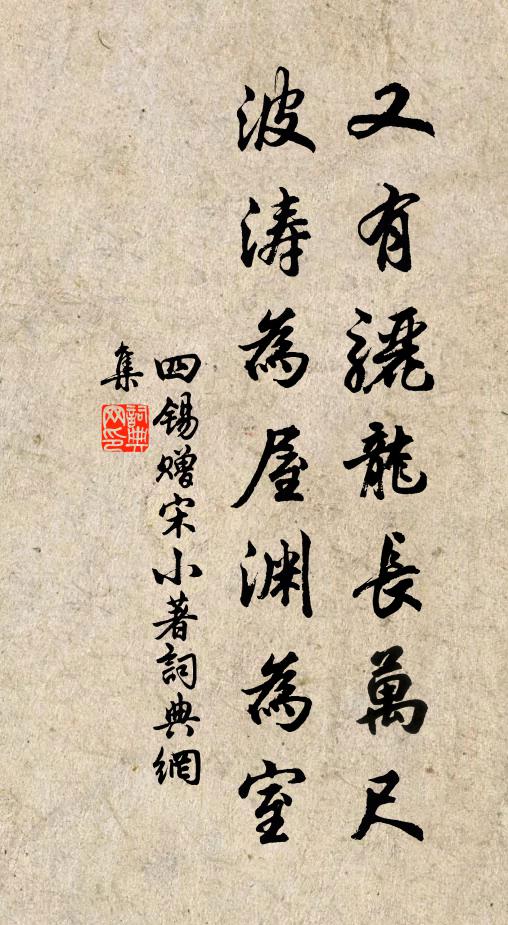 又有驪龍長萬尺
波濤為屋淵為室
四錫贈宋小著詞典網
集
詞典
网印